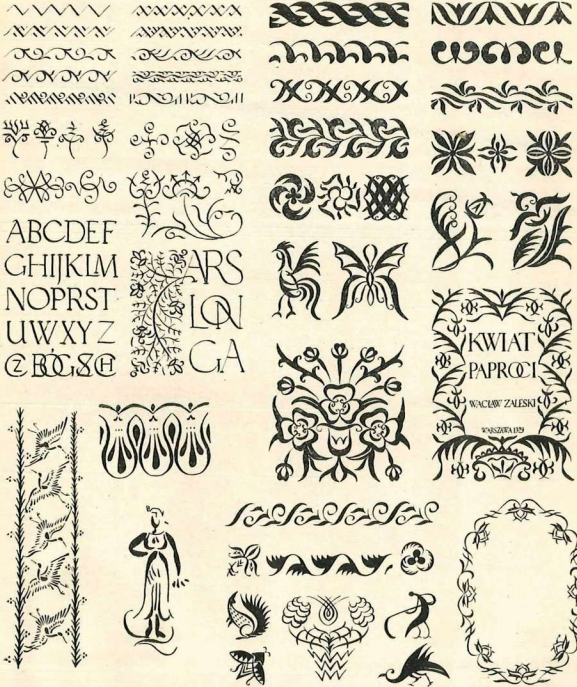 ABCDEF
GHIJKLM
NOPRST
UWXYZ
ARS
LON
GA
KWIAT
PAPROCI
WACŁAW ZALESKI
WARSZAWA 1929